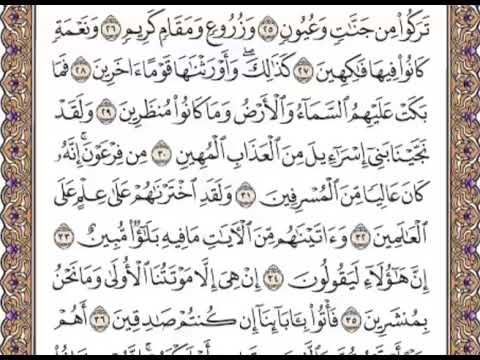 تَرَكُوا۟ مِن جَنَّٰتٍ وَعُيُونٍ ٢٥ وَزُرُوعٍ وَمَقَامٍ كَرِيمٍ ٢٦ وَنَعْمَةٍ
كَانُوا۟ فِيهَا فَٰكِهِينَ ٢٧ كَذَٰلِكَ ۖ وَأَوْرَثْنَٰهَا قَوْمًا ءَاخَرِينَ ٢٨ فَمَا
بَكَتْ عَلَيْهِمُ ٱلسَّمَآءُ وَٱلْأَرْضُ وَمَا كَانُوا۟ مُنظَرِينَ ٢٩ وَلَقَدْ
نَجَّيْنَا بَنِىٓ إِسْرَٰٓءِيلَ مِنَ ٱلْعَذَابِ ٱلْمُهِينِ ٣٠ مِن فِرْعَوْنَ ۚ إِنَّهُۥ
كَانَ عَالِيًا مِّنَ ٱلْمُسْرِفِينَ ٣١ وَلَقَدِ ٱخْتَرْنَٰهُمْ عَلَىٰ عِلْمٍ عَلَى
ٱلْعَٰلَمِينَ ٣٢ وَءَاتَيْنَٰهُم مِّنَ ٱلْءَايَٰتِ مَا فِيهِ بَلَٰٓؤٌا۟ مُّبِينٌ ٣٣
إِنَّ هَٰٓؤُلَآءِ لَيَقُولُونَ ٣٤ إِنْ هِىَ إِلَّا مَوْتَتُنَا ٱلْأُولَىٰ وَمَا نَحْنُ
بِمُنشَرِينَ ٣٥ فَأْتُوا۟ بِـَٔابَآئِنَآ إِن كُنتُمْ صَٰدِقِينَ ٣٦ أَهُمْ